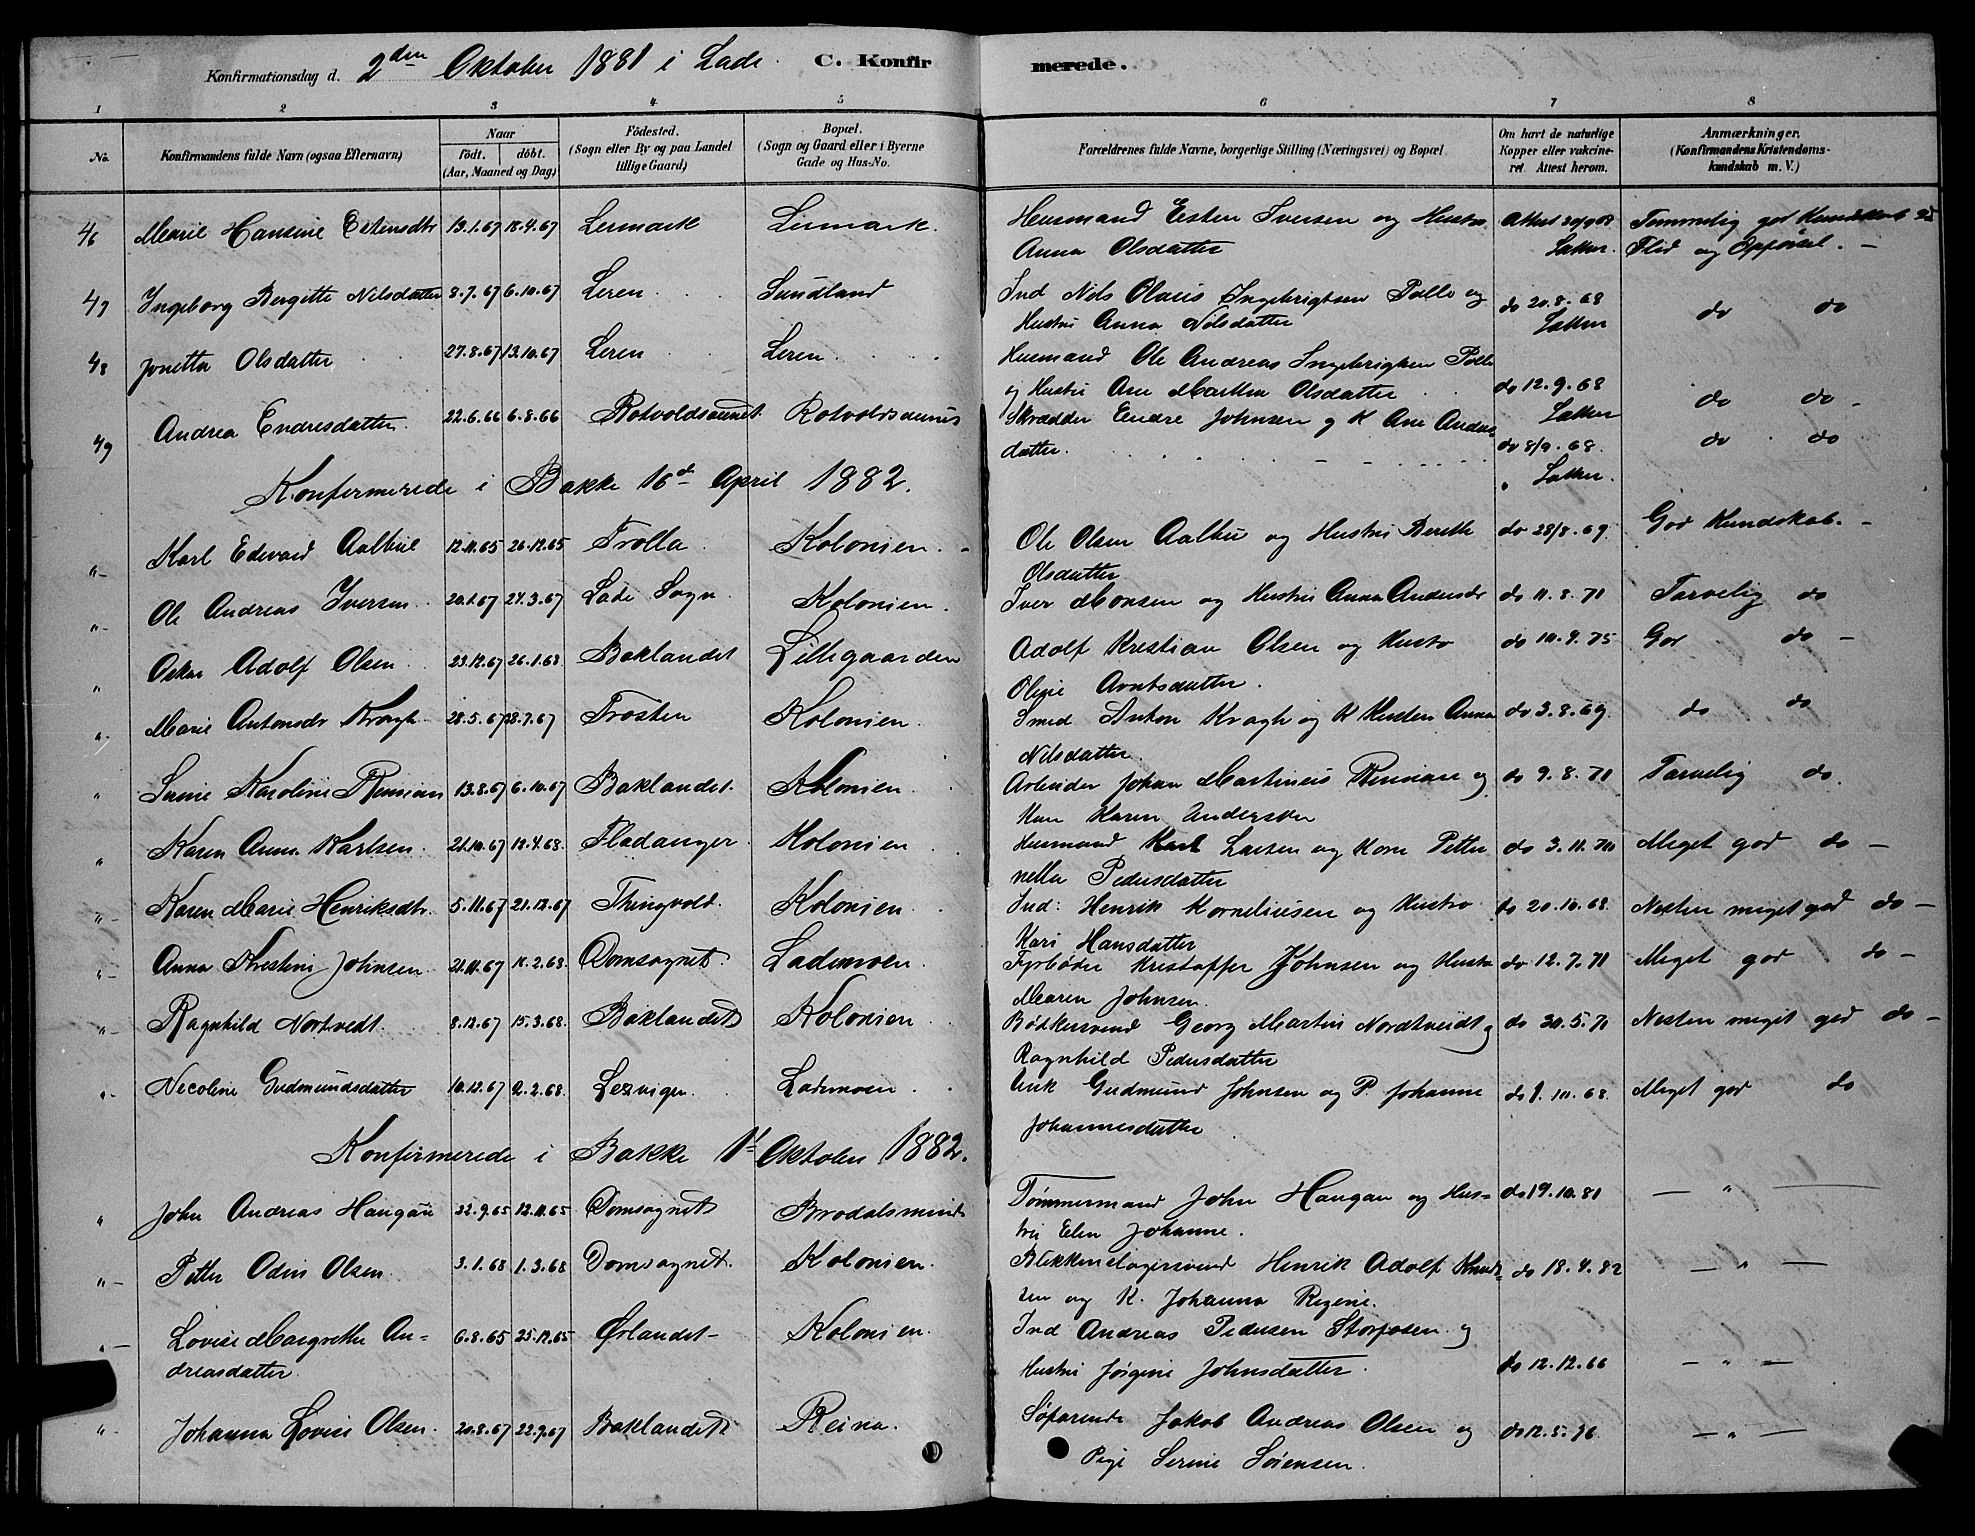 Konfirmationsdag d. 2den Oktober 1881 i Lade. C. Konfirmerede.
1 2 3 4 5 6 7 8
No. Konfirmandens fulde Navn (ogsaa Efternavn) Naar födt. döbt. (Aar, Maaned og Dag) Födested. (Sogn eller By og paa Landet tillige Gaard) Bopæl. (Sogn og Gaard eller i Byerne Gade og Hus-No. Forældrenes fulde Navne, borgerlige Stilling (Næringsvei) og Bopæl. Om havt de naturlige Kopper eller vakcineret. Attest herom. Anmærkninger. (Konfirmandens Kristendomskundskab m. V.)
46 Marie Hansine Estensdtr 13.1.67 18.4.67 Lermark Lermark. Husmand Esten Iversen og Hustru Attest Temmelig god Kundskab
Anna Olsdatter Flid og Opførsel. —
47 Ingeborg Bergitte Nilsdatter 8.7.67 6.10.67 Leren Sundland Ind Nils Olaus Ingebrigtsen og do 20.8.68 do do
Hustru Anna Nilsdatter
48 Jonetta Olsdatter 27.8.67 13.10.67 Leren Leren Husmand Ole Andreas Ingebrigtsen
og Hustru Ane Martha Olsdatter do 12.9.68 do do
49 Andrea Endresdatter 22.6.66 6.8.66 Rotvoldsaunet Skrædder Endre Johnsen og K Ane Anders
datter. do 8/9.68. do do
Konfirmerede i Bakke 16de April 1882.
"- Karl Edvard Aalbue 12.11.65 26.12.65 Trolla Kolonien. Ole Olsen Aalbu og Hustru Berethe do 28/8.69 God Kundskab. -
Olsdatter
"- Ole Andreas Iversen 20.1.67 24.3.67 Lade Sogn Kolonien. Iver Monsen og Hustru Anna Andersdr do 11.8.71 Tarvelig do
" Oskar Adolf Olsen 23.12.67 26.1.68 Baklandet Lillegaarden Adolf Kristian Olsen og Hustr do 10.9.75 God do -
Oline Arntsdatter.
"- Marie Antonsdr Kragh 28.5.67 Frosten Kolonien. Smed Anton Kragh og K Anna do 3.8.69 do do
Nilsdatter.
" Karoline 13.8.67 6.10.67 Baklandet. Kolonien. Arbeider Johan Martinus og do 9.8.71 Tarvelig do
Karen Andersen
" Karen Anna Karlsen. 21.10.67 19.4.68. Fladanger Kolonien Husmand Karl Larsen og Kone Petter do 3.11.70 Meget god do -
nella Pedersdatter
"- Karen Marie Henriksdtr. 5.11.67 21.12.67 Thingvold. Kolonien Ind: Henrik Korneliusen og Hustro do 20.10.68. Nesten meget god do -
Kari Hansdatter
"- Anna Kristine Johnsen 21.11.67 11.2.68. Domsognet. Lademoen. Fyrbøder Kristoffer Johnsen og Hustr do 12.7.71 Meget god do -
Maren Johnsen.
"- Ragnhild Nortvedt. 8.12.67 15.3.68. Baklandet Kolonien Bødkersvend Georg Martin Nordtveidt og do 30.5.71 Nesten meget god do -
Ragnhild Pedersdatter
"- Necoline Gudmundsdatter 10.12.67 2.2.68. Lexvigen. Lademoen. Gudmund Johnsen og P. Johanne do 1.10.68. Meget god do
Johannesdatter
Konfirmerede i Bakke 1st Oktober 1882.
" John Andreas Haugan 22.9.65 12.11.65 Domsognet Tømmermand John Haugan og Hus- do 19.10.81 — " —
tru Elen Johanne.
"- Petter Odin Olsen 3.1.68 1.3.68 Domsognet. Kolonien. Blikkenslagersvend Henrik Adolf Knudt- do 18.4.82 — " —
sen og K. Johanna Regine.
"- Lovise Margrethe An- 6.8.65 25.12.65 Ørlandet- Kolonien. Ind Andreas Pedersen Storfosen og
dreasdatter. Hustru Jørgine Johnsdatter. do 12.12.66 — " —
"- Johanna Lovise Olsen. 20.8.67 22.9.67 Baklandet Reina. Søfarende Jakob Andreas Olsen og do 12.5.76 — " —
Pige Serine Sørensen.